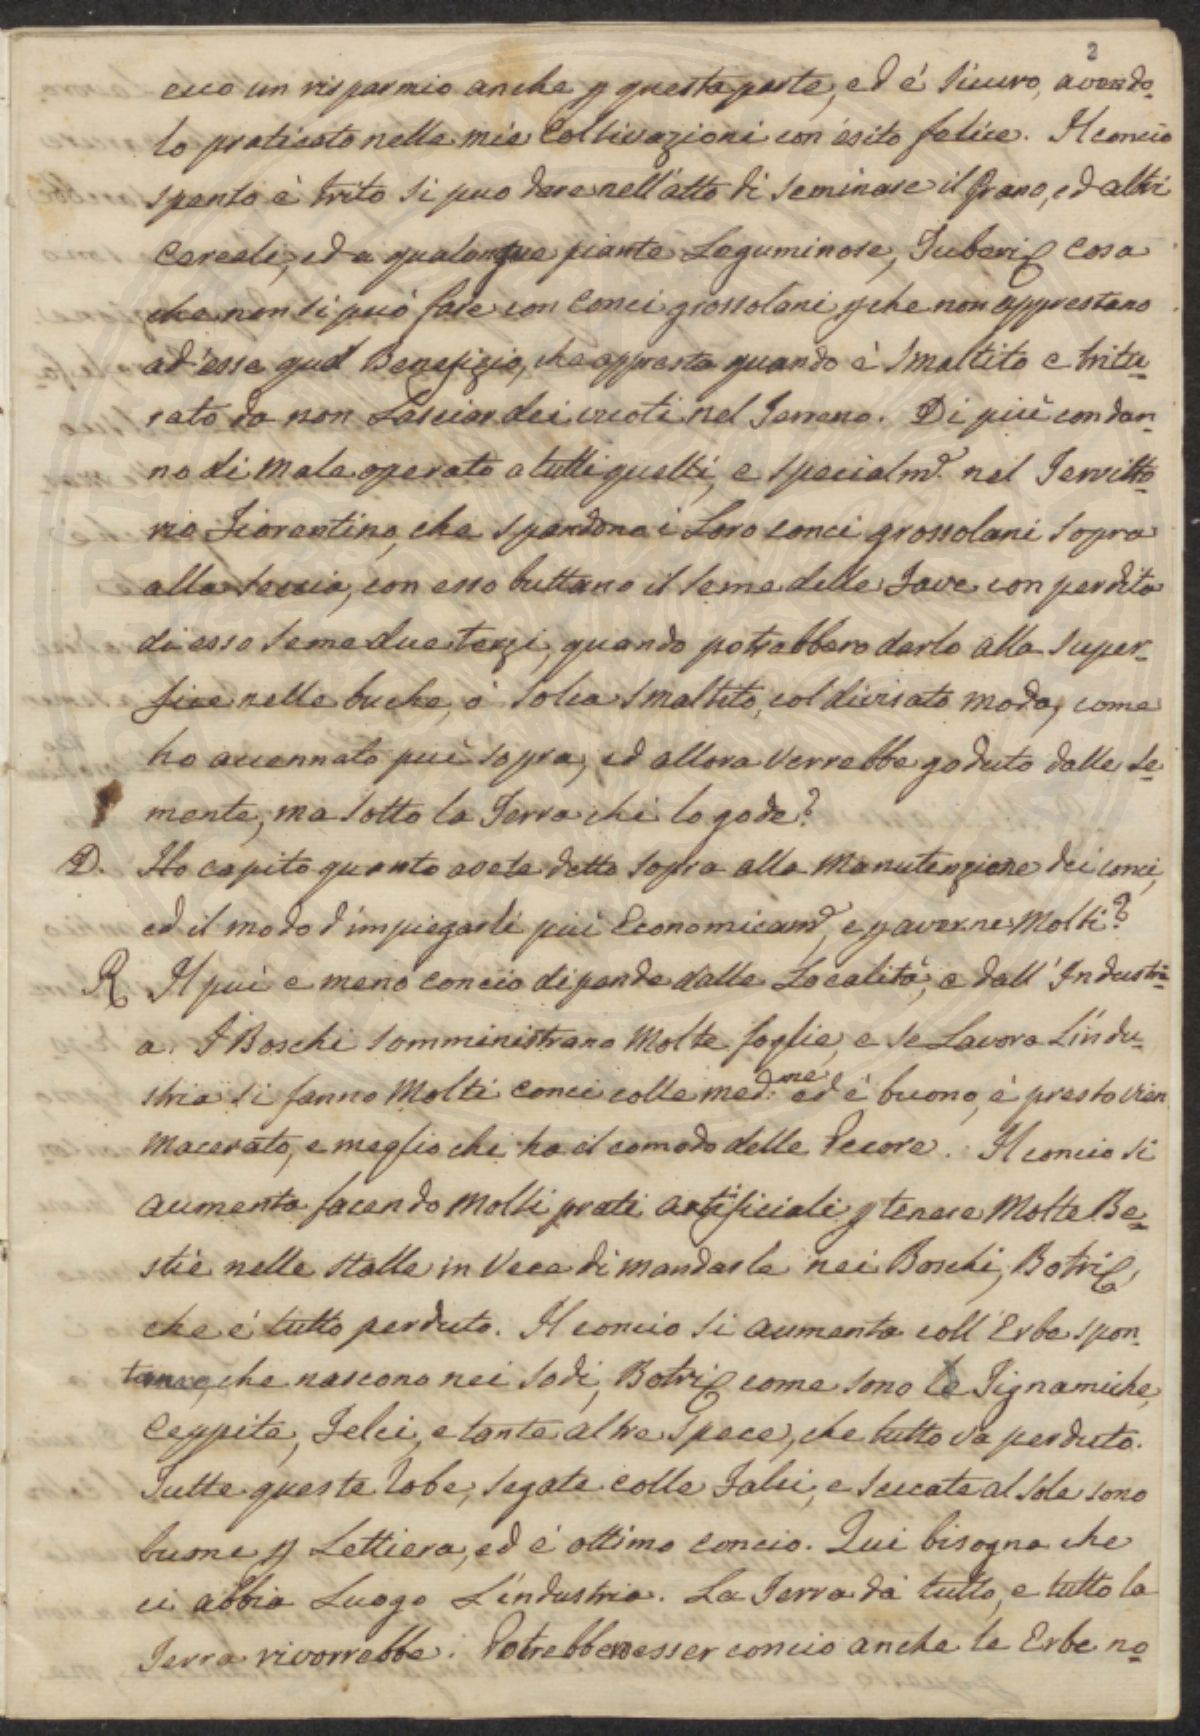 2
ecco un risparmio anche p questa parte, ed é sicuro, avendo-
lo praticato nelle mie Coltivazioni con ésito felice. Il concio
spento è trito si puo dare nell'atto di seminare il Grano, ed altri
Cereali, ed a qualunque piante Leguminose, Tuberi& cosa
che non si può fare con Conci grossolani p che non apprestano
ad'esse quel Benefizio, che appresta quando è smaltito e tritu-
rato da non Lasciar dei vuoti nel Terreno. Di più condan-
no di male operato a tutti quelli, e specialmᵉ. nel Territto-
rio Fiorentino, che spandono i Loro conci grossolani sopra
alla seccia, con esso buttano il seme delle Fave con perdita
di esso seme due terzi, quando potrebbero darlo alla super-
fice nelle buche, o' solca smaltito, col divisato modo, come
ho accennato più sopra, ed allora verrebbe goduto dalle se-
mente, ma sotto la Terra chi lo gode?
D. Ho capito quanto avete detto sopra alla Manutenzione dei conci,
ed il modo d'impiegarli più Economicamᵉ, e p averne Molti?
R Il più e meno concio dipende dalle Località, e dall'Industri-
a. I Boschi somministrano Molte foglie, e se Lavora L'indu-
stria si fanno Molti conci colle med.ᵐᵉ ed é buono, è presto vien
Macerato, e meglio chi ha il comodo delle Pecore. Il concio si
aumenta facendo Molti prati artificiali p tenere Molte Be-
stie nelle stalle in Vece di mandarle nei Boschi, Botri&,
che é tutto perduto. Il concio si aumenta coll'Erbe spon-
tanee, che nascono nei sodi, Botri& come sono le Tignamiche,
Ceppite, Felci, e tante altre Spece, che tutto va perduto.
Tutte queste Robe, segate colle Falci, e seccate al sole sono
buone p Lettiera, ed é ottimo concio. Qui bisogna che
ci abbia Luogo L'industria. La Terra dà tutto, e tutto la
Terra rivorrebbe. Potrebbero esser concio anche le Erbe no-